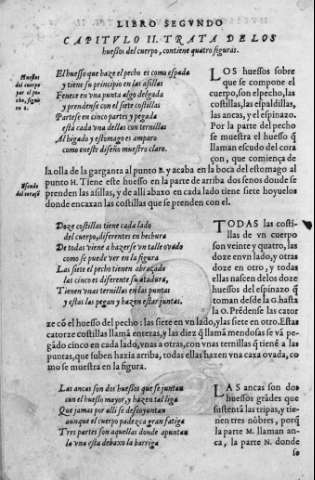 LIBRO SEGVNDO
CAPITVLO II. TRATA DE LOS
huessos del cuerpo, contiene quatro figuras.
Huessos
del cuerpo
por el pe-
cho, figura
2.
El huesso que haze el pecho es como espada
y tiene su principio en las asillas
Fenece en vna punta algo delgada
y prendense con el siete costillas
Partese en cinco partes y pegada
està cada vna dellas con ternillas
Al higado y estomago es amparo
como en este diseño muestro claro.
LOS huessos sobre
que se compone el
cuerpo, son el pecho, las
costillas, las espaldillas,
las ancas, y el espinazo.
Por la parte del pecho
se muestra el huesso q̃
llaman escudo del cora
çon, que comiença de
la olla de la garganta al punto B. y acaba en la boca del estomago al
punto H. Tiene este huesso en la parte de arriba dos senos donde se
prenden las asillas, y de alli abaxo en cada lado tiene siete hoyuelos
donde encaxan las costillas que se prenden con el.
del coraçõ
Doze costillas tiene cada lado
del cuerpo, diferentes en hechura
De todas viene a hazerse vn talle ovado
como se puede ver en la figura
Las siete el pecho tienen abraçado
las cinco es diferente su atadura,
Tienen vnas ternillas en las puntas
y estas las pegan y hazen estar juntas.
TODAS las costi-
llas de vn cuerpo
son veinte y quatro, las
doze en vn lado, y otras
doze en otro, y todas
ellas nascen de los doze
huessos del espinazo q̃
toman desde la G. hasta
la O. Prẽdense las cator
ze cõ el huesso del pecho: las siete en vn lado, y las siete en otro. Estas
catorze costillas llamã enteras, y las diez q̃ llamã mendosas se vã pe
gãdo cinco en cada lado, vnas a otras, con vnas ternillas q̃ tienẽ a las
puntas, que suben hazia arriba, todas ellas hazen vna caxa ovada, co
mo se muestra en la figura.
Las ancas son dos huessos que se juntan
con el huesso mayor, y hazen tal liga
Que jamas por alli se descoyuntan
aunque el cuerpo padezca gran fatiga
Tres partes son aquellas donde apuntan
la vna esta debaxo la barriga
LAS ancas son dos
huessos grãdes que
sustentã las tripas, y tie-
nen tres nõbres, porq̃
la parte M. llaman an-
ca, la parte N. donde
so